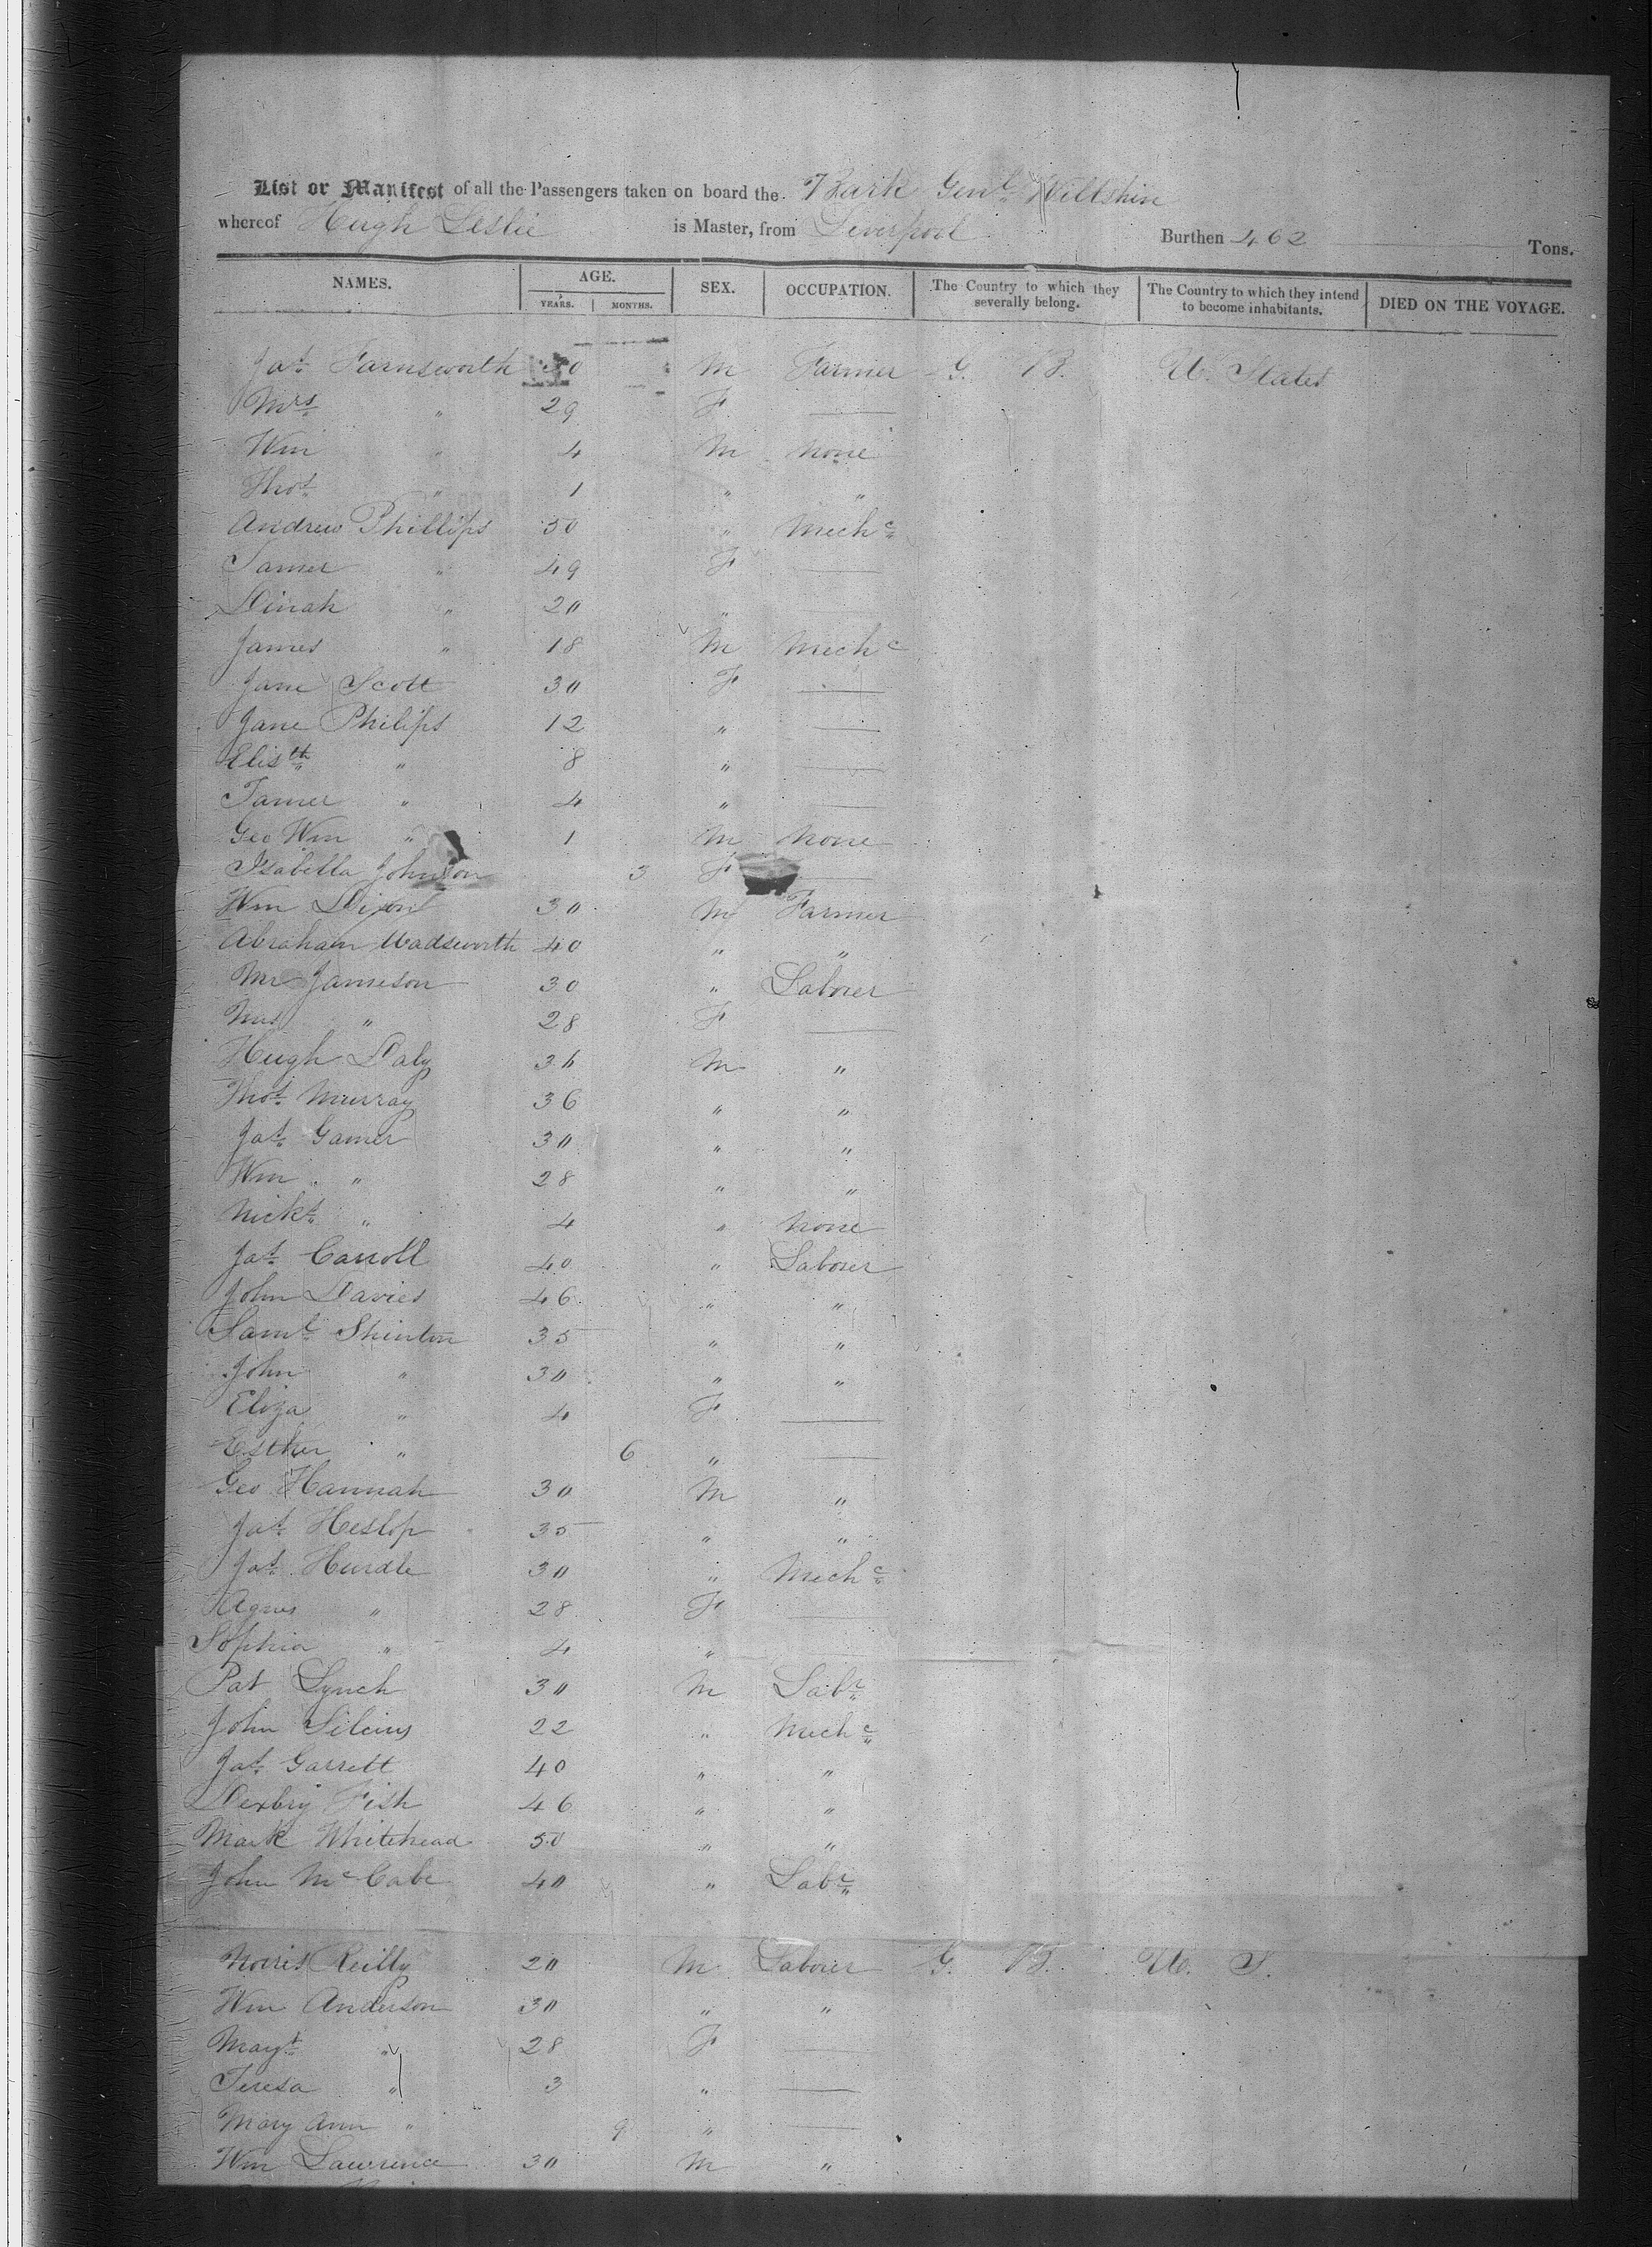 List or Manifest of all the Passengers taken on board the Bark Genl. Willshire
whereof Hugh Leslie is Master, from Liverpool Burthen 462 Tons.
NAMES. AGE. SEX. OCCUPATION. The Country to which they severally belong. The Country to which they intend to become inhabitants. DIED ON THE VOYAGE.
YEARS. MONTHS.
Jas. Farnsworth 30 M Farmer G. B. U. States
Mrs " 29 F
Wm " 4 M none
Thos. " 1 " "
Andrew Phillips 50 " Mechc
Tamer " 49 F
Dinah " 20 "
James " 18 M Mechc
Jane Scott 30 F
Jane Philips 12 "
Elisth " 8 "
Tamer " 4 "
Geo Wm " 1 M none
Isabella Johnson 3 F
Wm Dixon 30 M Farmer
Abraham Wadsworth 40 " "
Mr Jameson 30 " Laborer
Mrs " 28 F
Hugh Daly 36 M "
Thos. Murray 36 " "
Jas. Gamer 30 " "
Wm " 28 " "
Nichs. " 4 " none
Jas. Carroll 40 " Laborer
John Davies 46 " "
Saml. Shinton 35 " "
John " 30 " "
Eliza " 4 F
Esther " 6 "
Geo Hannah 30 M "
Jas. Heslop 35 " "
Jas. Hurdle 30 " Mechc
Agnes " 28 F
Sophia " 4 "
Pat Lynch 30 M Labr
John 22 " Mechc
Jas. Garrett 40 " "
Fish 46 " "
Mark Whitehead 50 " "
John McCabe 40 " Labr
Morris Reilly 20 M Laborer G. B. U. S.
Wm Anderson 30 " "
Mayt " 28 F
Teresa " 3 "
Mary Ann " 9 "
Wm Lawrence 30 M "